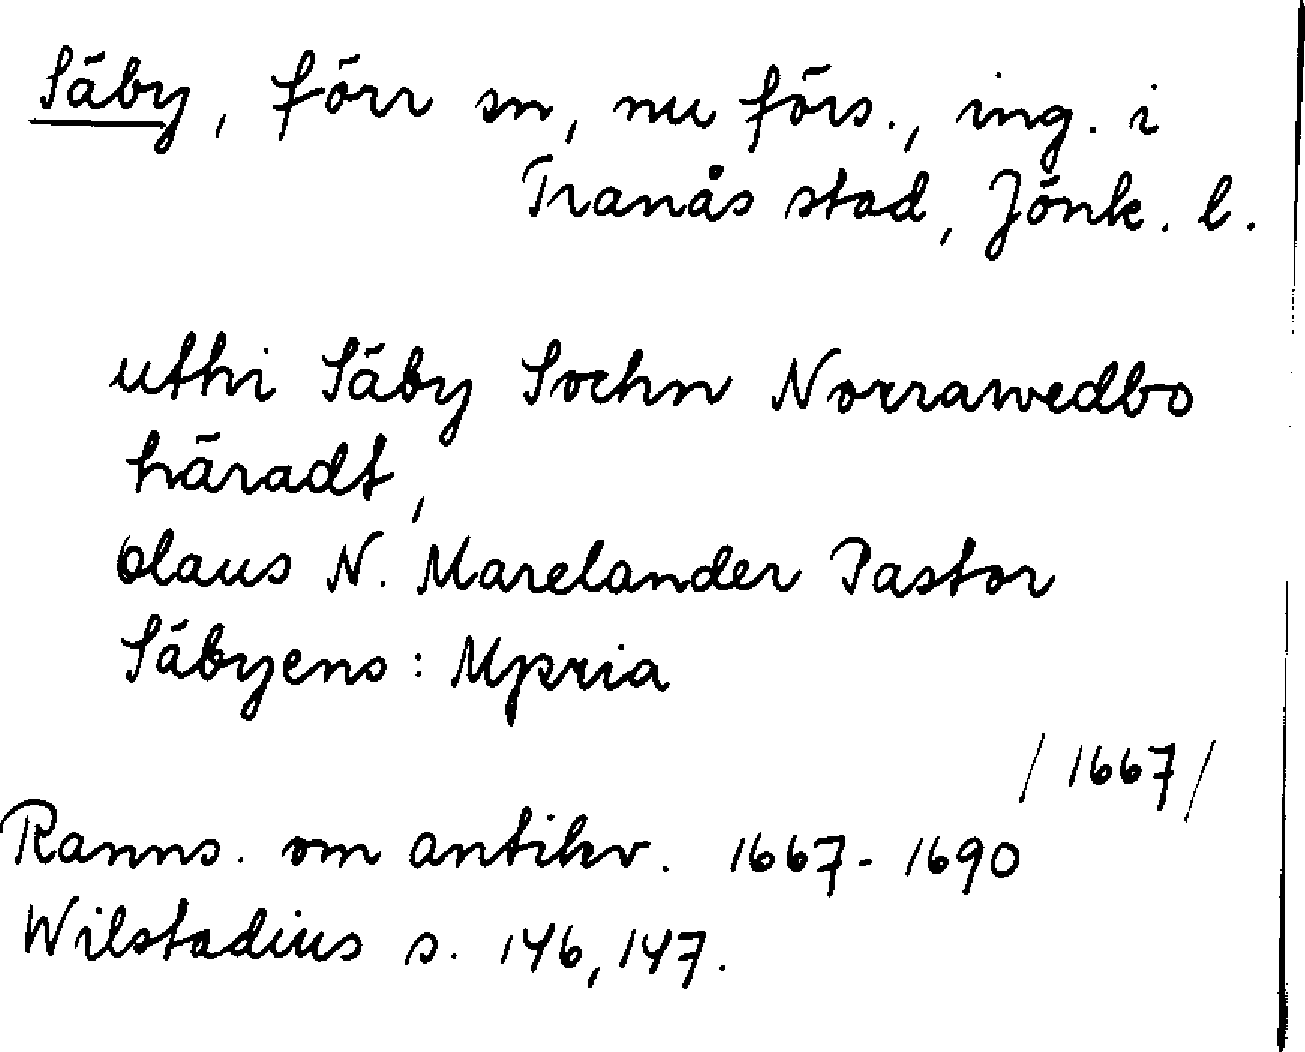 Säby, förr sn, nu förs., ing. i
Tranås stad, Jönk. l.
uthi Säby Sochn Norrawedbo
häradt,
Olaus N. Marelander Pastor
Säbyens: Mpria
/1667/
Ranns. om antikv. 1667-1690
Wilstadius s. 146, 147.